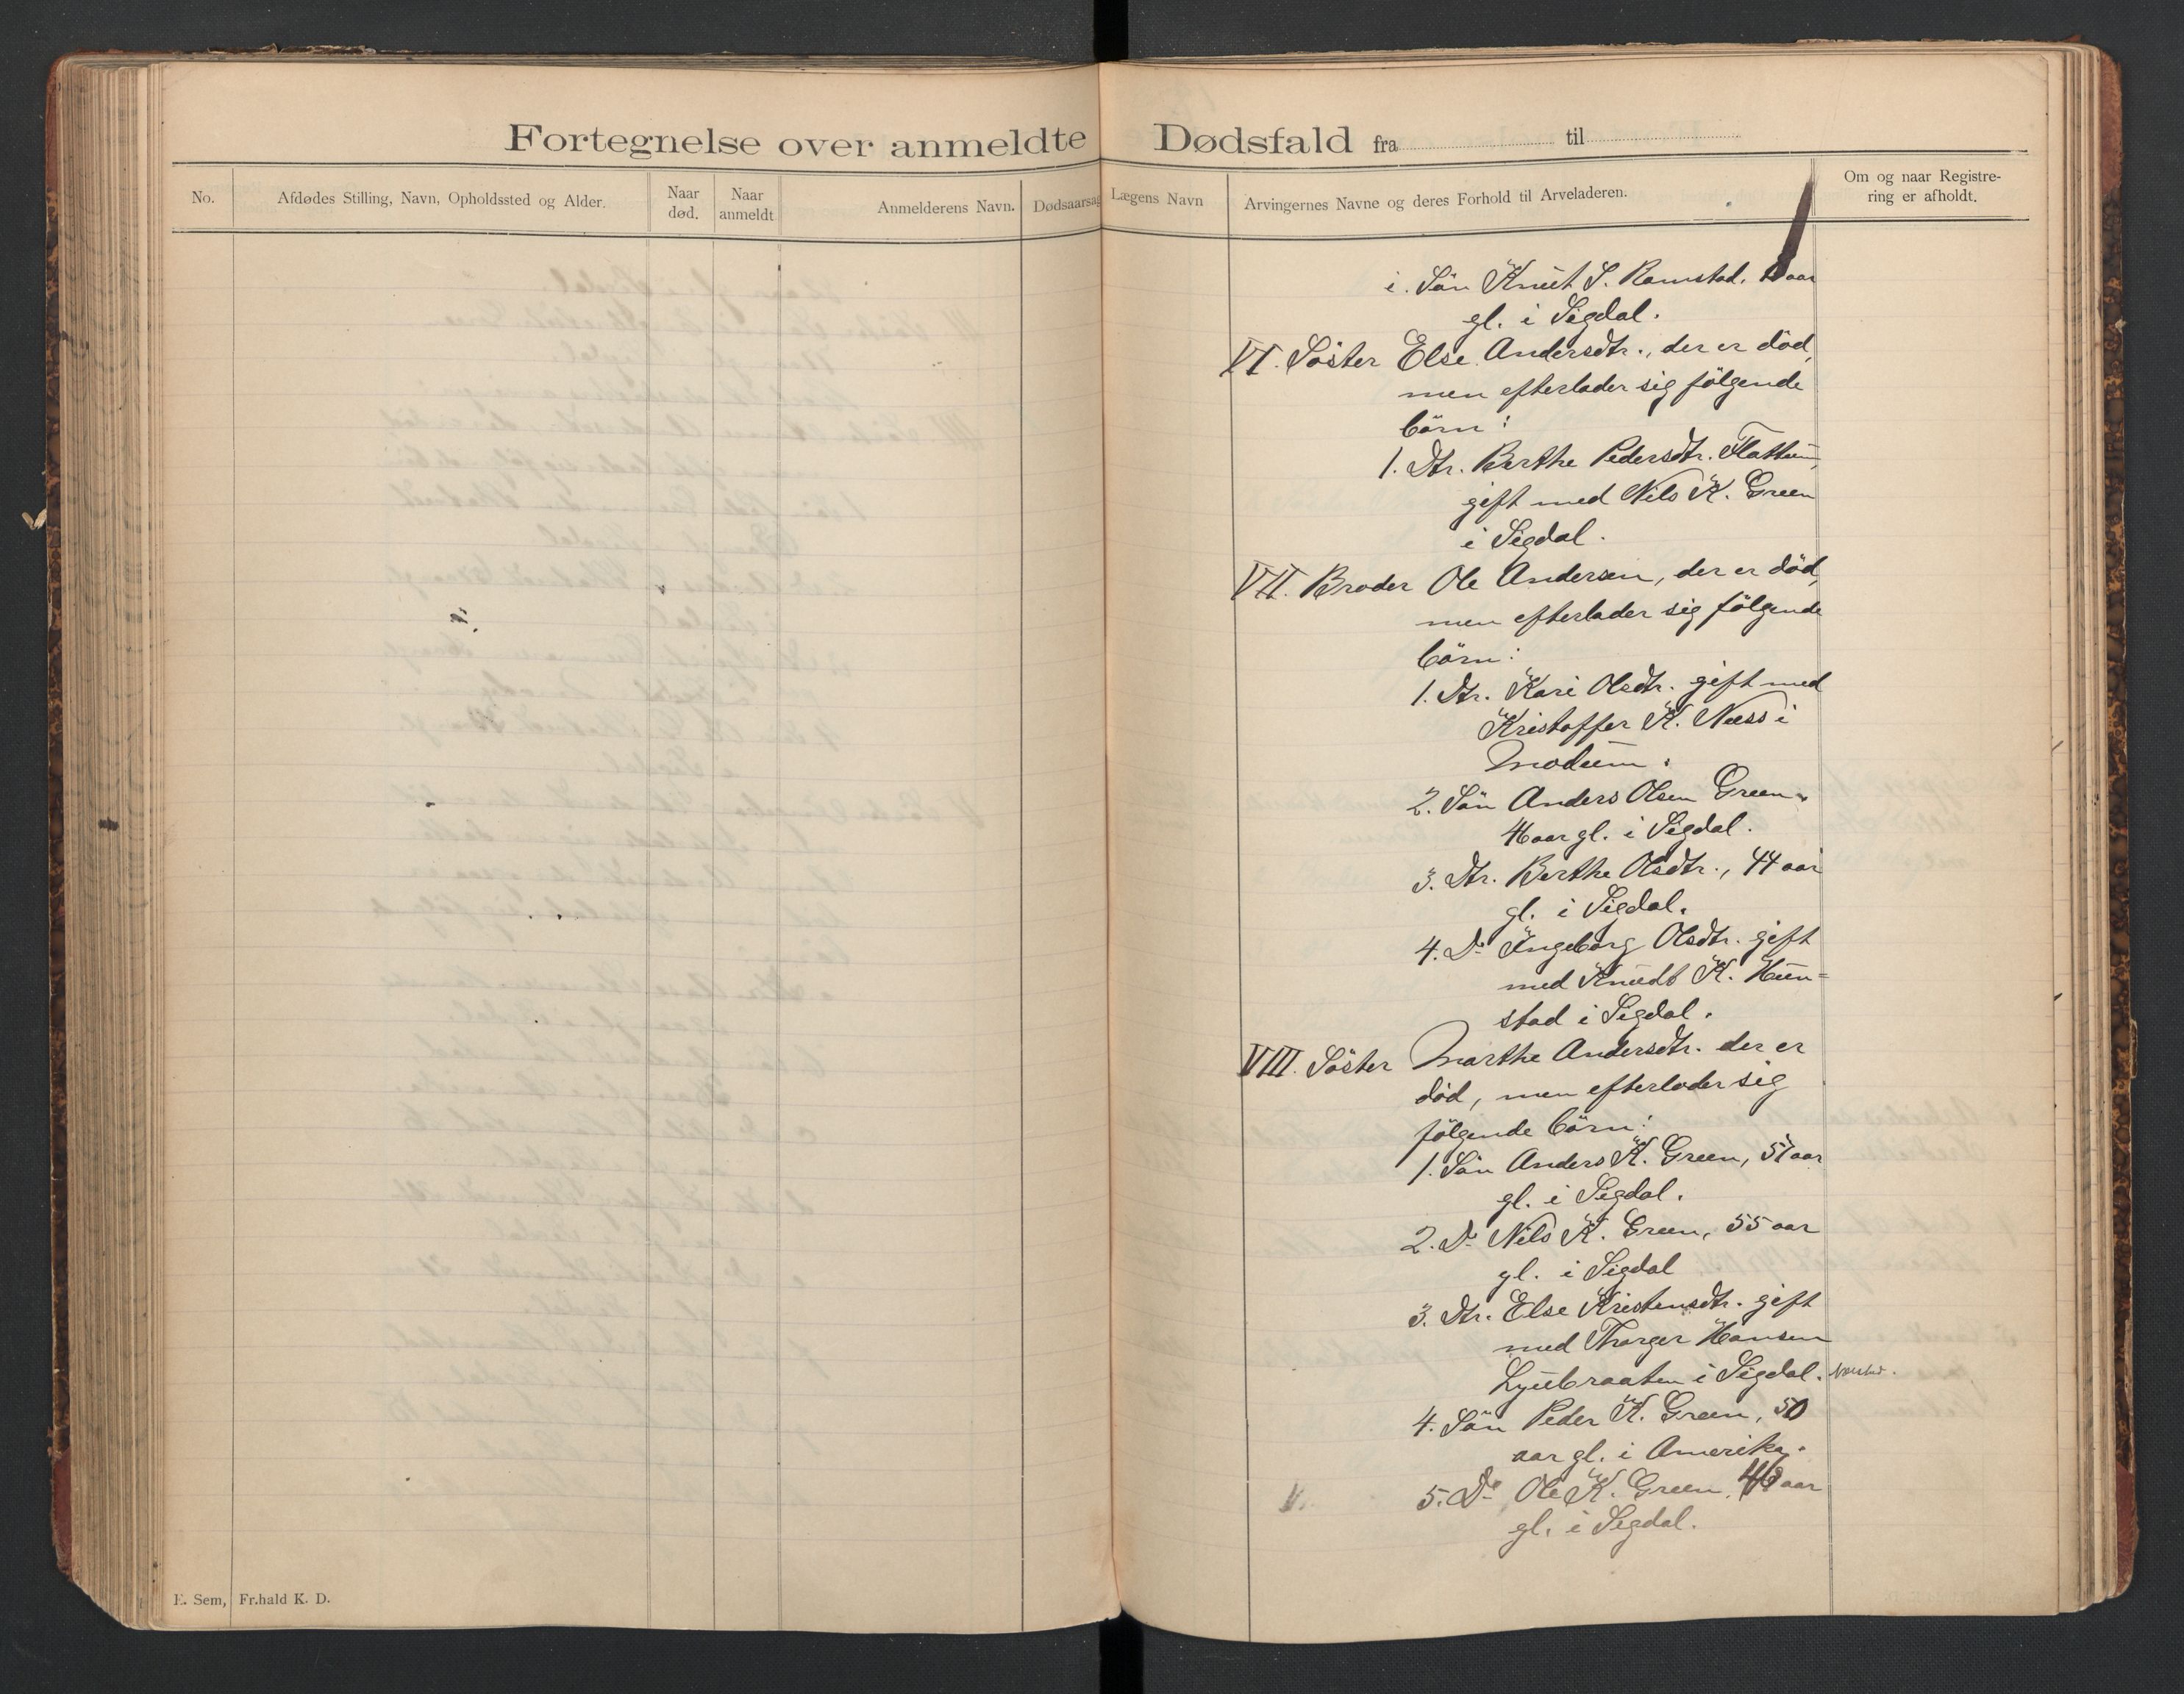 Fortegnelse over anmeldte Dødsfald fra til
No.
Afdødes Stilling, Navn, Opholdssted og Alder.
Naar død.
Naar anmeldt
Anmelderens Navn.
Dødsaarsag
Lægens Navn
Arvingernes Navne og deres Forhold til Arveladeren.
Om og naar Registre-
ring er afholdt.
i. Sön Knut S. Ramstad. aar
gl. i Sigdal.
VI. Söster Else Andersdtr., der er död,
men efterlader sig fölgende
börn:
1. Dtr. Berthe Pedersdtr. Flattum,
gift med Nils K. Green
i Sigdal.
VII. Broder Ole Andersen, der er död,
men efterlader sig fölgende
börn:
1. Dtr. Kari Olsdtr. gift med
Kristoffer K. Næss i
Modum.
2. Sön Anders Olsen Green,
46 aar gl. i Sigdal.
3. Dtr. Berthe Olsdtr., 44 aar
gl. i Sigdal.
4. Do Ingeborg Olsdtr. gift
med Knudt K. Hun=
stad i Sigdal.
VIII. Söster Marthe Andersdtr. der er
död, men efterlader sig
fölgende börn:
1. Sön Anders K. Green, 57 aar
gl. i Sigdal.
2. Do Nils K. Green, 55 aar
gl. i Sigdal
3. Dtr. Else Kristensdtr. gift
med Thorger Hansen
Lyubraaten i Sigdal.
4. Sön Peder K. Green, 50
aar gl. i Amerika.
V. 5. Do Ole K. Green, 46 aar
gl. i Sigdal.
E. Sem, Fr.hald K. D.